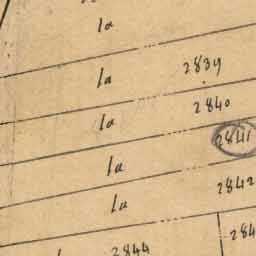 la
la 2839
la 2840
la 2841
la 2842
2844